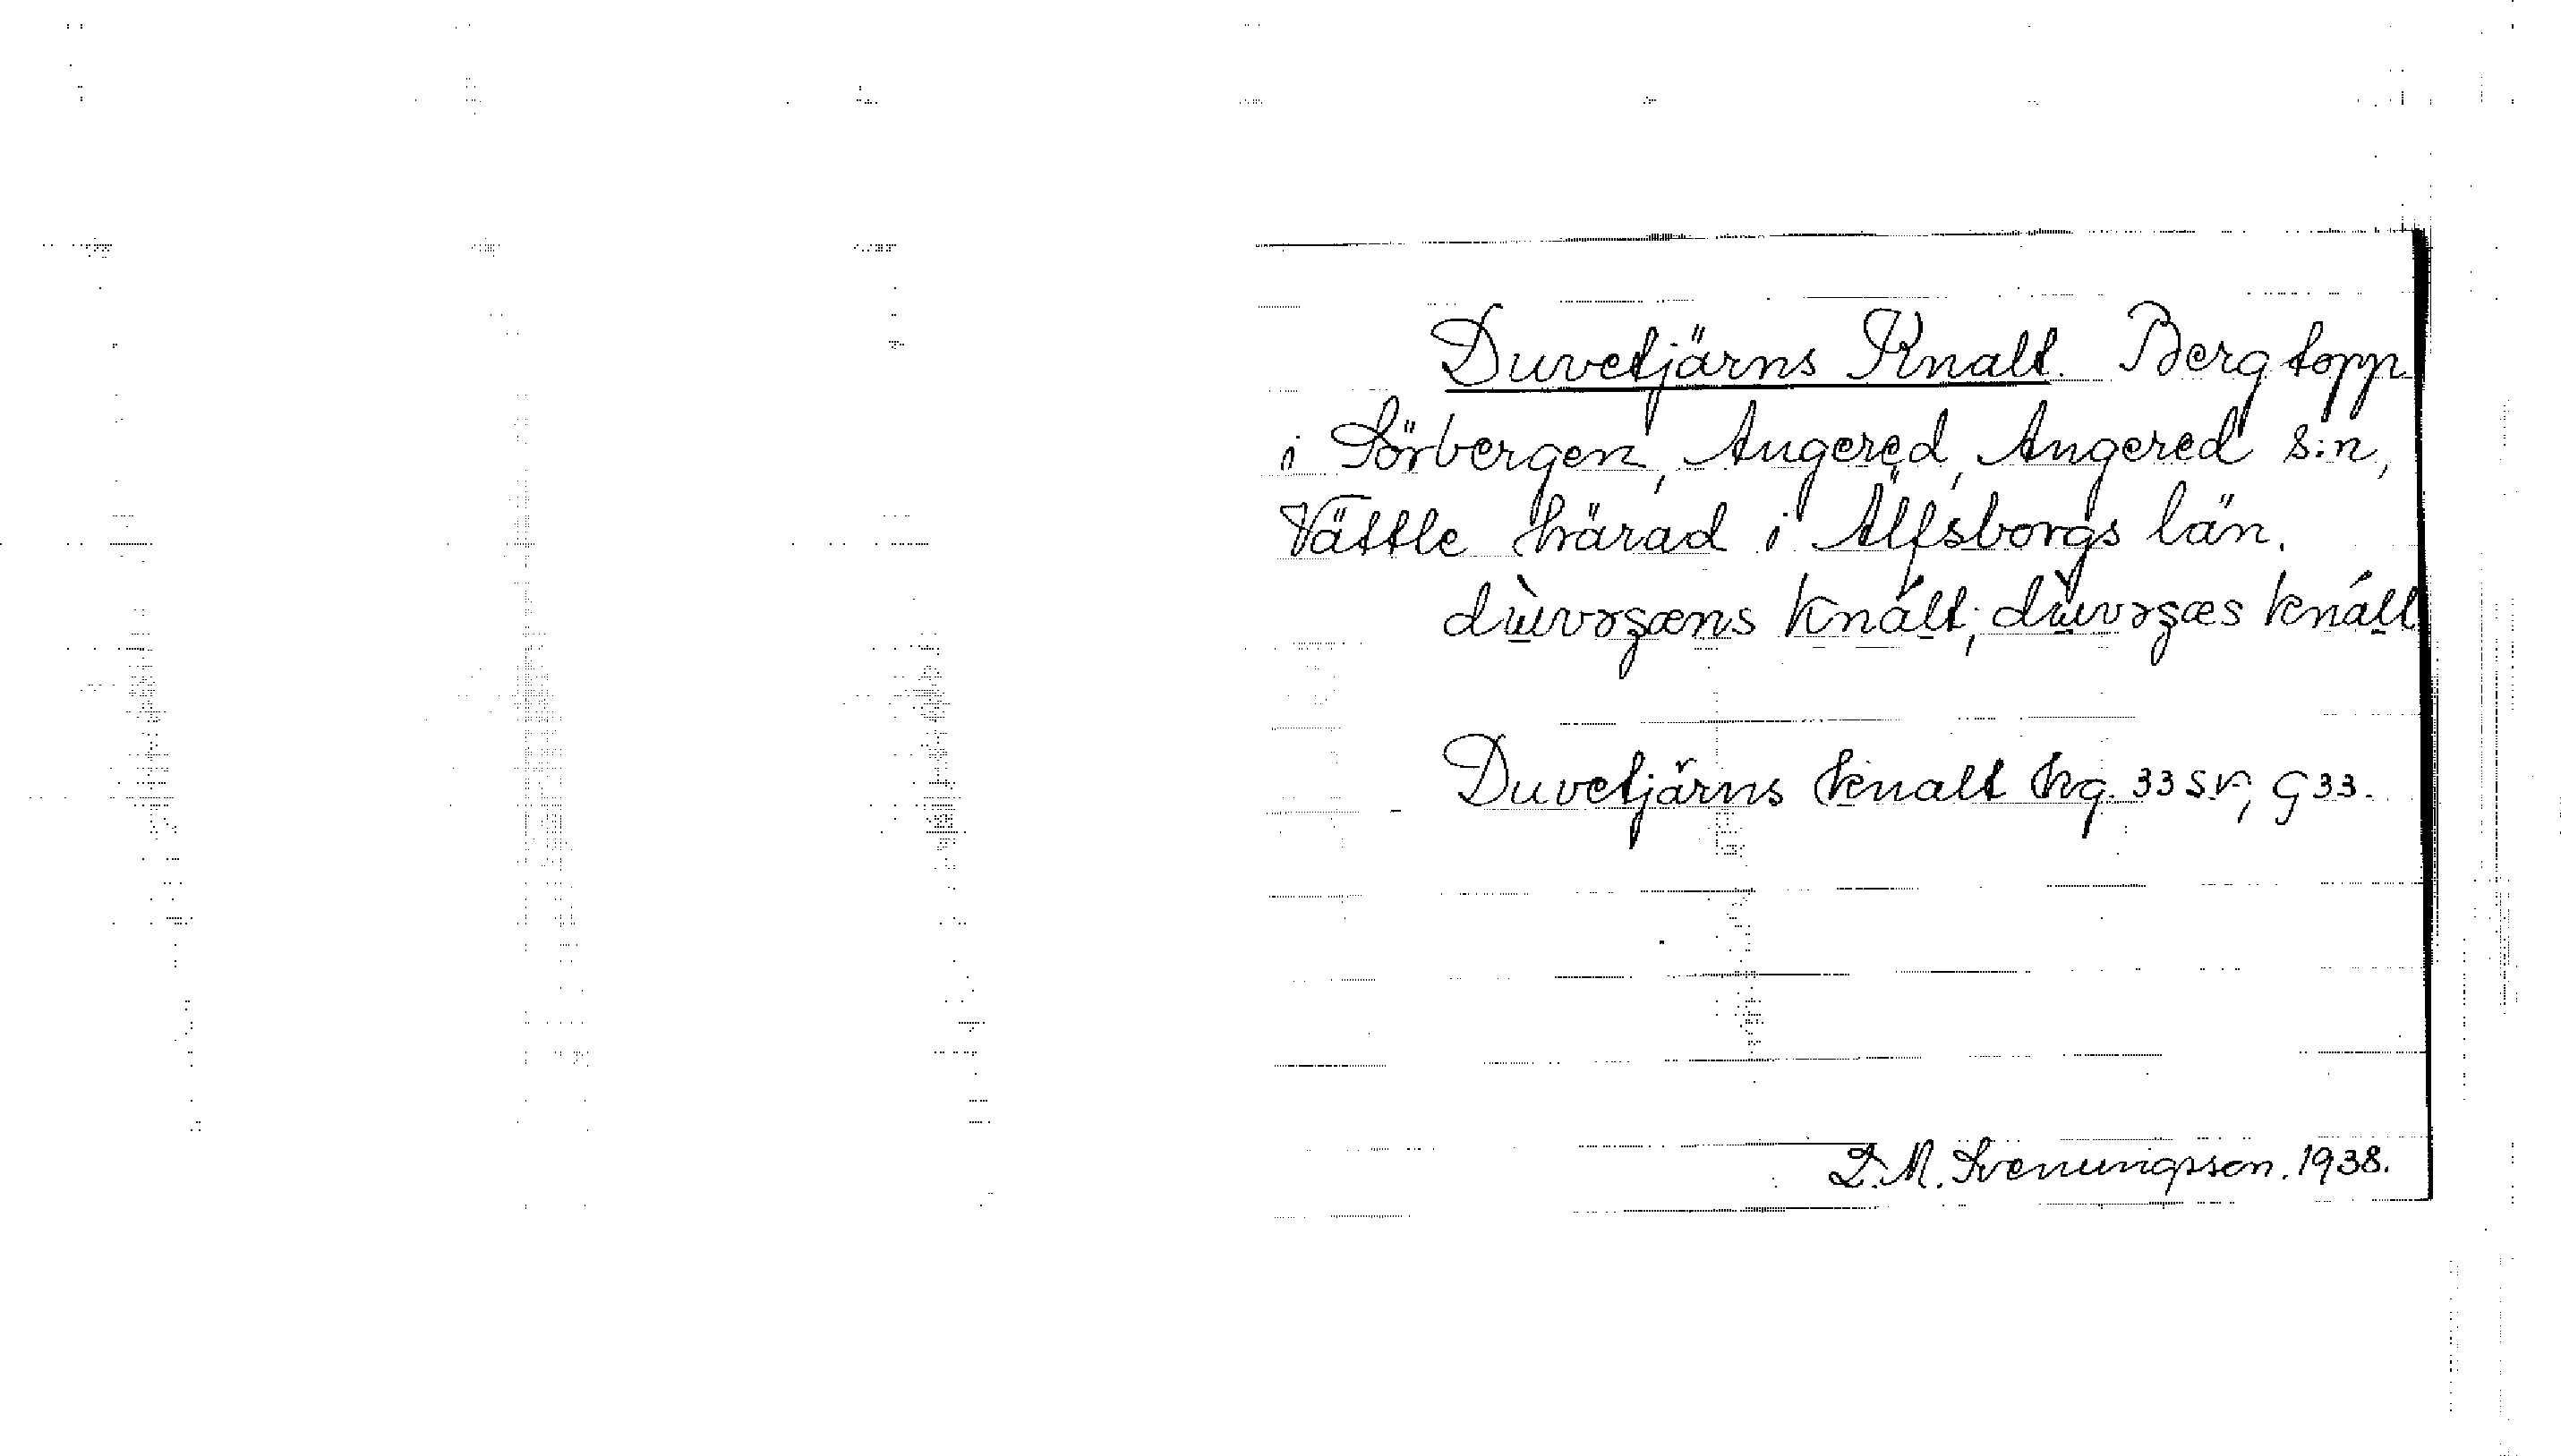 Duvetjärns Knalt. Bergtopp
i Sörbergen, Angered, Angered s:n,
Vättle härad i Älfsborgs län.
knált; knált
Duvetjärns knalt hg. 33 SV, G33.
D. M. Svenungsson. 1938.